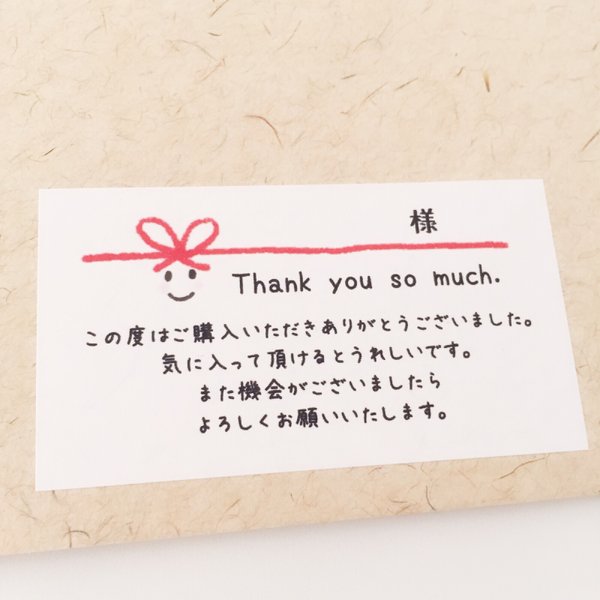 様
Thank you so much.
この度はご購入いただきありがとうございました。
気に入って頂けるとうれしいです。
また機会がございましたら
よろしくお願いいたします。